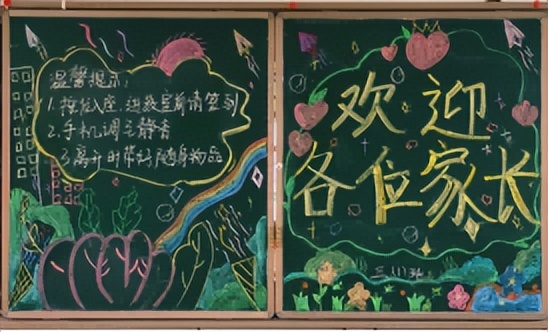 温馨提示:
1.按位入座.进教室前请签到
2.手机调至静音
3.离开时带好随身物品
欢迎
各位家长
三(1)班